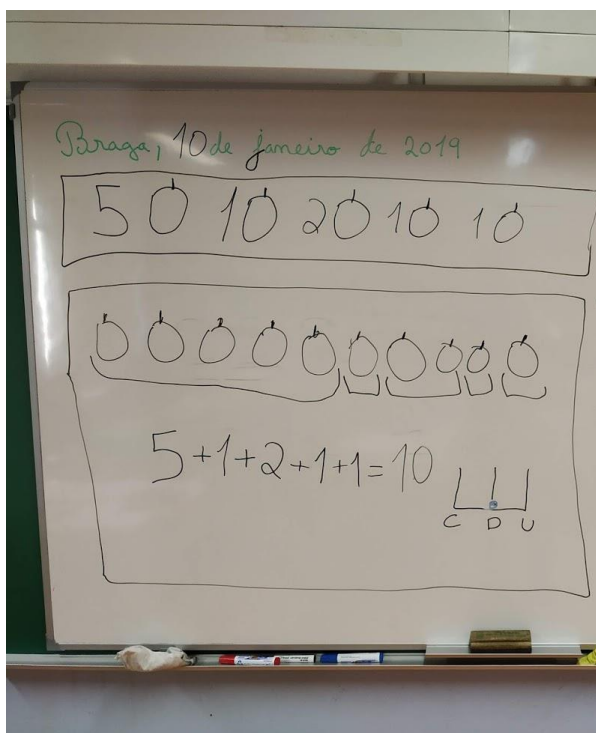 Braga, 10 de janeiro de 2019
5 1 2 1 1
5+1+2+1+1=10
C D U